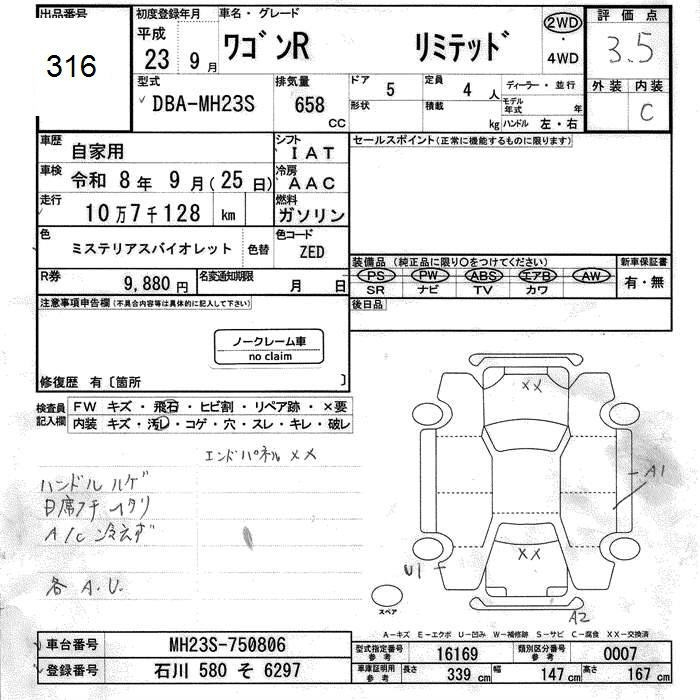 出品番号
316
初度登録年月
平成
23 9月
車名・グレード
ワゴンR リミテッド
2WD
・
4WD
評価点
3.5
外装 内装
C
型式
DBA-MH23S
排気量
658
CC
ドア 5
定員 4 人
ディーラー・並行
形状
積載
kg
モデル年式
年
ハンドル 左・右
車歴
自家用
シフト
IAT
セールスポイント(正常に機能するものに限ります)
車検
令和 8年 9月(25日)
冷房
AAC
走行
10万7千128 km
燃料
ガソリン
色
ミステリアスバイオレット
色替
色コード
ZED
装備品 (純正品に限り○をつけてください)
新車保証書
PS PW ABS エアB AW
SR ナビ TV カワ
有・無
R券
9,880円
名変通知期限
月 日
後日品
注意事項申告欄(不具合内容等は具体的に記入して下さい)
ノークレーム車
no claim
修復歴 有〔箇所 〕
検査員記入欄
FW キズ・飛石・ヒビ割・リペア跡・×要
内装 キズ・汚レ・コゲ・穴・スレ・キレ・破レ
エンドパネル XX
ハンドル ハゲ
A/C 冷えず
各 A.U.
XX
A1
XX
U1
A2
スペア
A-キズ E-エクボ U-凹み W-補修跡 S-サビ C-腐食 XX-交換済
車台番号
MH23S-750806
型式指定番号
参考
16169
類別区分番号
参考
0007
登録番号
石川 580 そ 6297
車庫証明用
参考
長さ 339 cm
幅 147 cm
高さ 167 cm